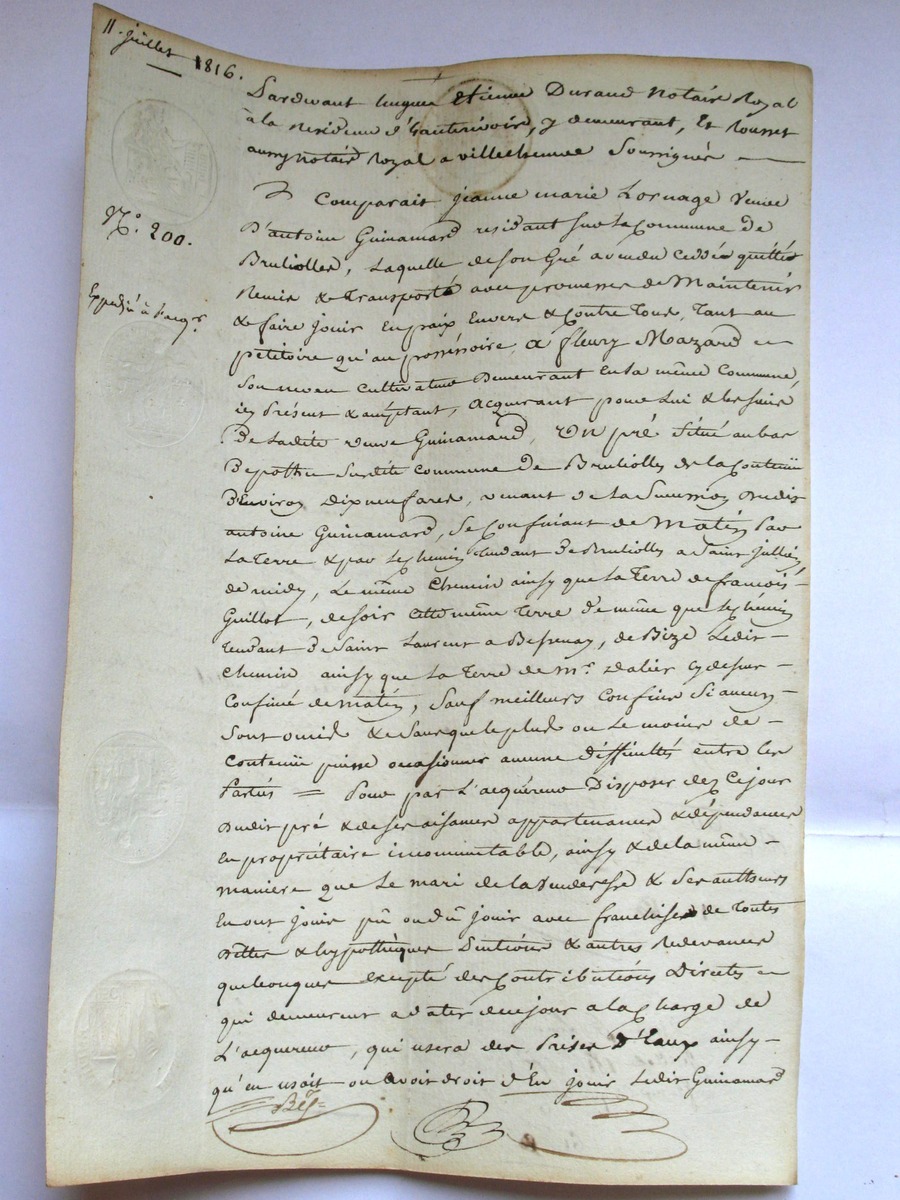 11. juillet 1816.
Pardevant hugue etienne Durand Notaire Royal
à la Residence d'hauterivoire, y demeurant, Et Rousset
aussy notaire Royal a villechenee Soussignés —
Comparait jeanne marie Lornage Veuve
N.º 200.
D'antoine Guinamard residant sur la Commune de
Brullioles, Laquelle de son Gré a vendu ceddé quitté
Expedié à
Remis & Transporté avec promesse de Maintenir
& faire jouir En paix Envers & Contre Tous, Tant au
petitoire qu'au possessoire, a fleury Mazard
Son neveu cultivateur Demeurant En la même Commune,
icy Présent & acceptant, acquerant pour Lui & les siens
De Ladite veuve Guinamard, Un pré Situé au bas
De Sur dite Commune de Brullioles de la Contenue
D'Environ dix neuf ares, venant de la Succession dudit
antoine Guinamard, Se Confiniant de Matin Par
La Terre & par le chemin Tendant De Brullioles a Saint julien,
de midy, Le même Chemin ainsy que la Terre de francois
Guillot, de soir cette même Terre de même que le chemin
Tendant De Saint Laurent a Bessenay, de Bize Ledit
chemin ainsy que La Terre de Mr. Dalier cy dessus
Confiné de matin, Sauf meilleurs Confins Si aucuns
Sont omis & Sans que le plus ou le moins de
Contenüe puisse occasioner aucune difficultés entre les
Parties = Pour par L'acquereur Disposer dez ce jour
dudit pré & de ses aisances appartenances & dépendances
En propriétaire incommutable, ainsy & de la même
manière que Le mari de la Venderesse & Ses autheurs
En ont joui pû ou dû jouir avec franchise de toutes
dettes & hypothèques & autres Redevances
quelconques excepté des Contributions Directes
qui demeurent a dater de ce jour a la Charge de
L'acquereur, qui usera des Prises d'Eaux ainsy
qu'en usoit ou avoit droit d'En jouir Ledit Guinamard